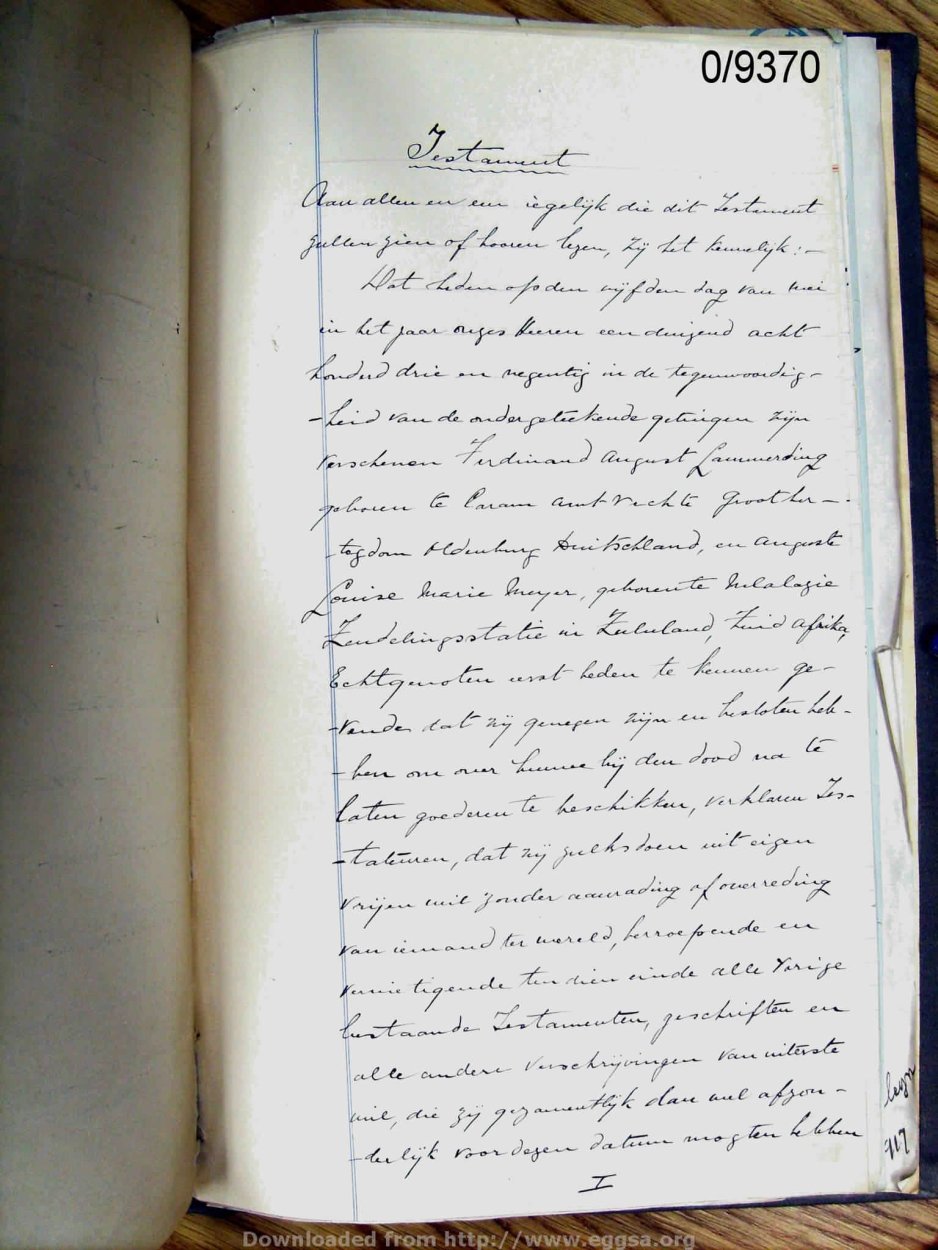 0/9370
Testament
Aan allen en een iegelijk die dit Testament
zullen zien of hooren lezen, zij het kennelijk:-
Dat heden op den vijfden dag van Mei
in het jaar onzes Heeren een duizend acht
honderd drie en negentig in de tegenwoordig-
-heid van de ondergeteekende getuigen zijn
verschenen Ferdinand August Lammerding
geboren te Carum amt Vechte Groot her-
-togdom Oldenburg Duitschland, en Auguste
Louise Marie Meyer, geboren te
Zendelingsstatie in Zululand, Zuid Afrika
Echtgenoten eerst heden te kennen ge-
-vende dat zij genegen zijn en besloten heb-
-ben om over hunne bij den dood na te
laten goederen te beschikken, verklaren Tes-
-tateuren, dat zij zulks doen uit eigen
vrijen wil zonder aanrading of overreding
van iemand ter wereld, herroepende en
vernietigende ten dien einde alle vorige
bestaande Testamenten, geschriften en
alle andere verschrijvingen van uiterste
wil, die zij gezamentlijk dan wel afzon-
-derlijk voor dezen datum mogten hebben
I
117
Downloaded from http://www.eggsa.org